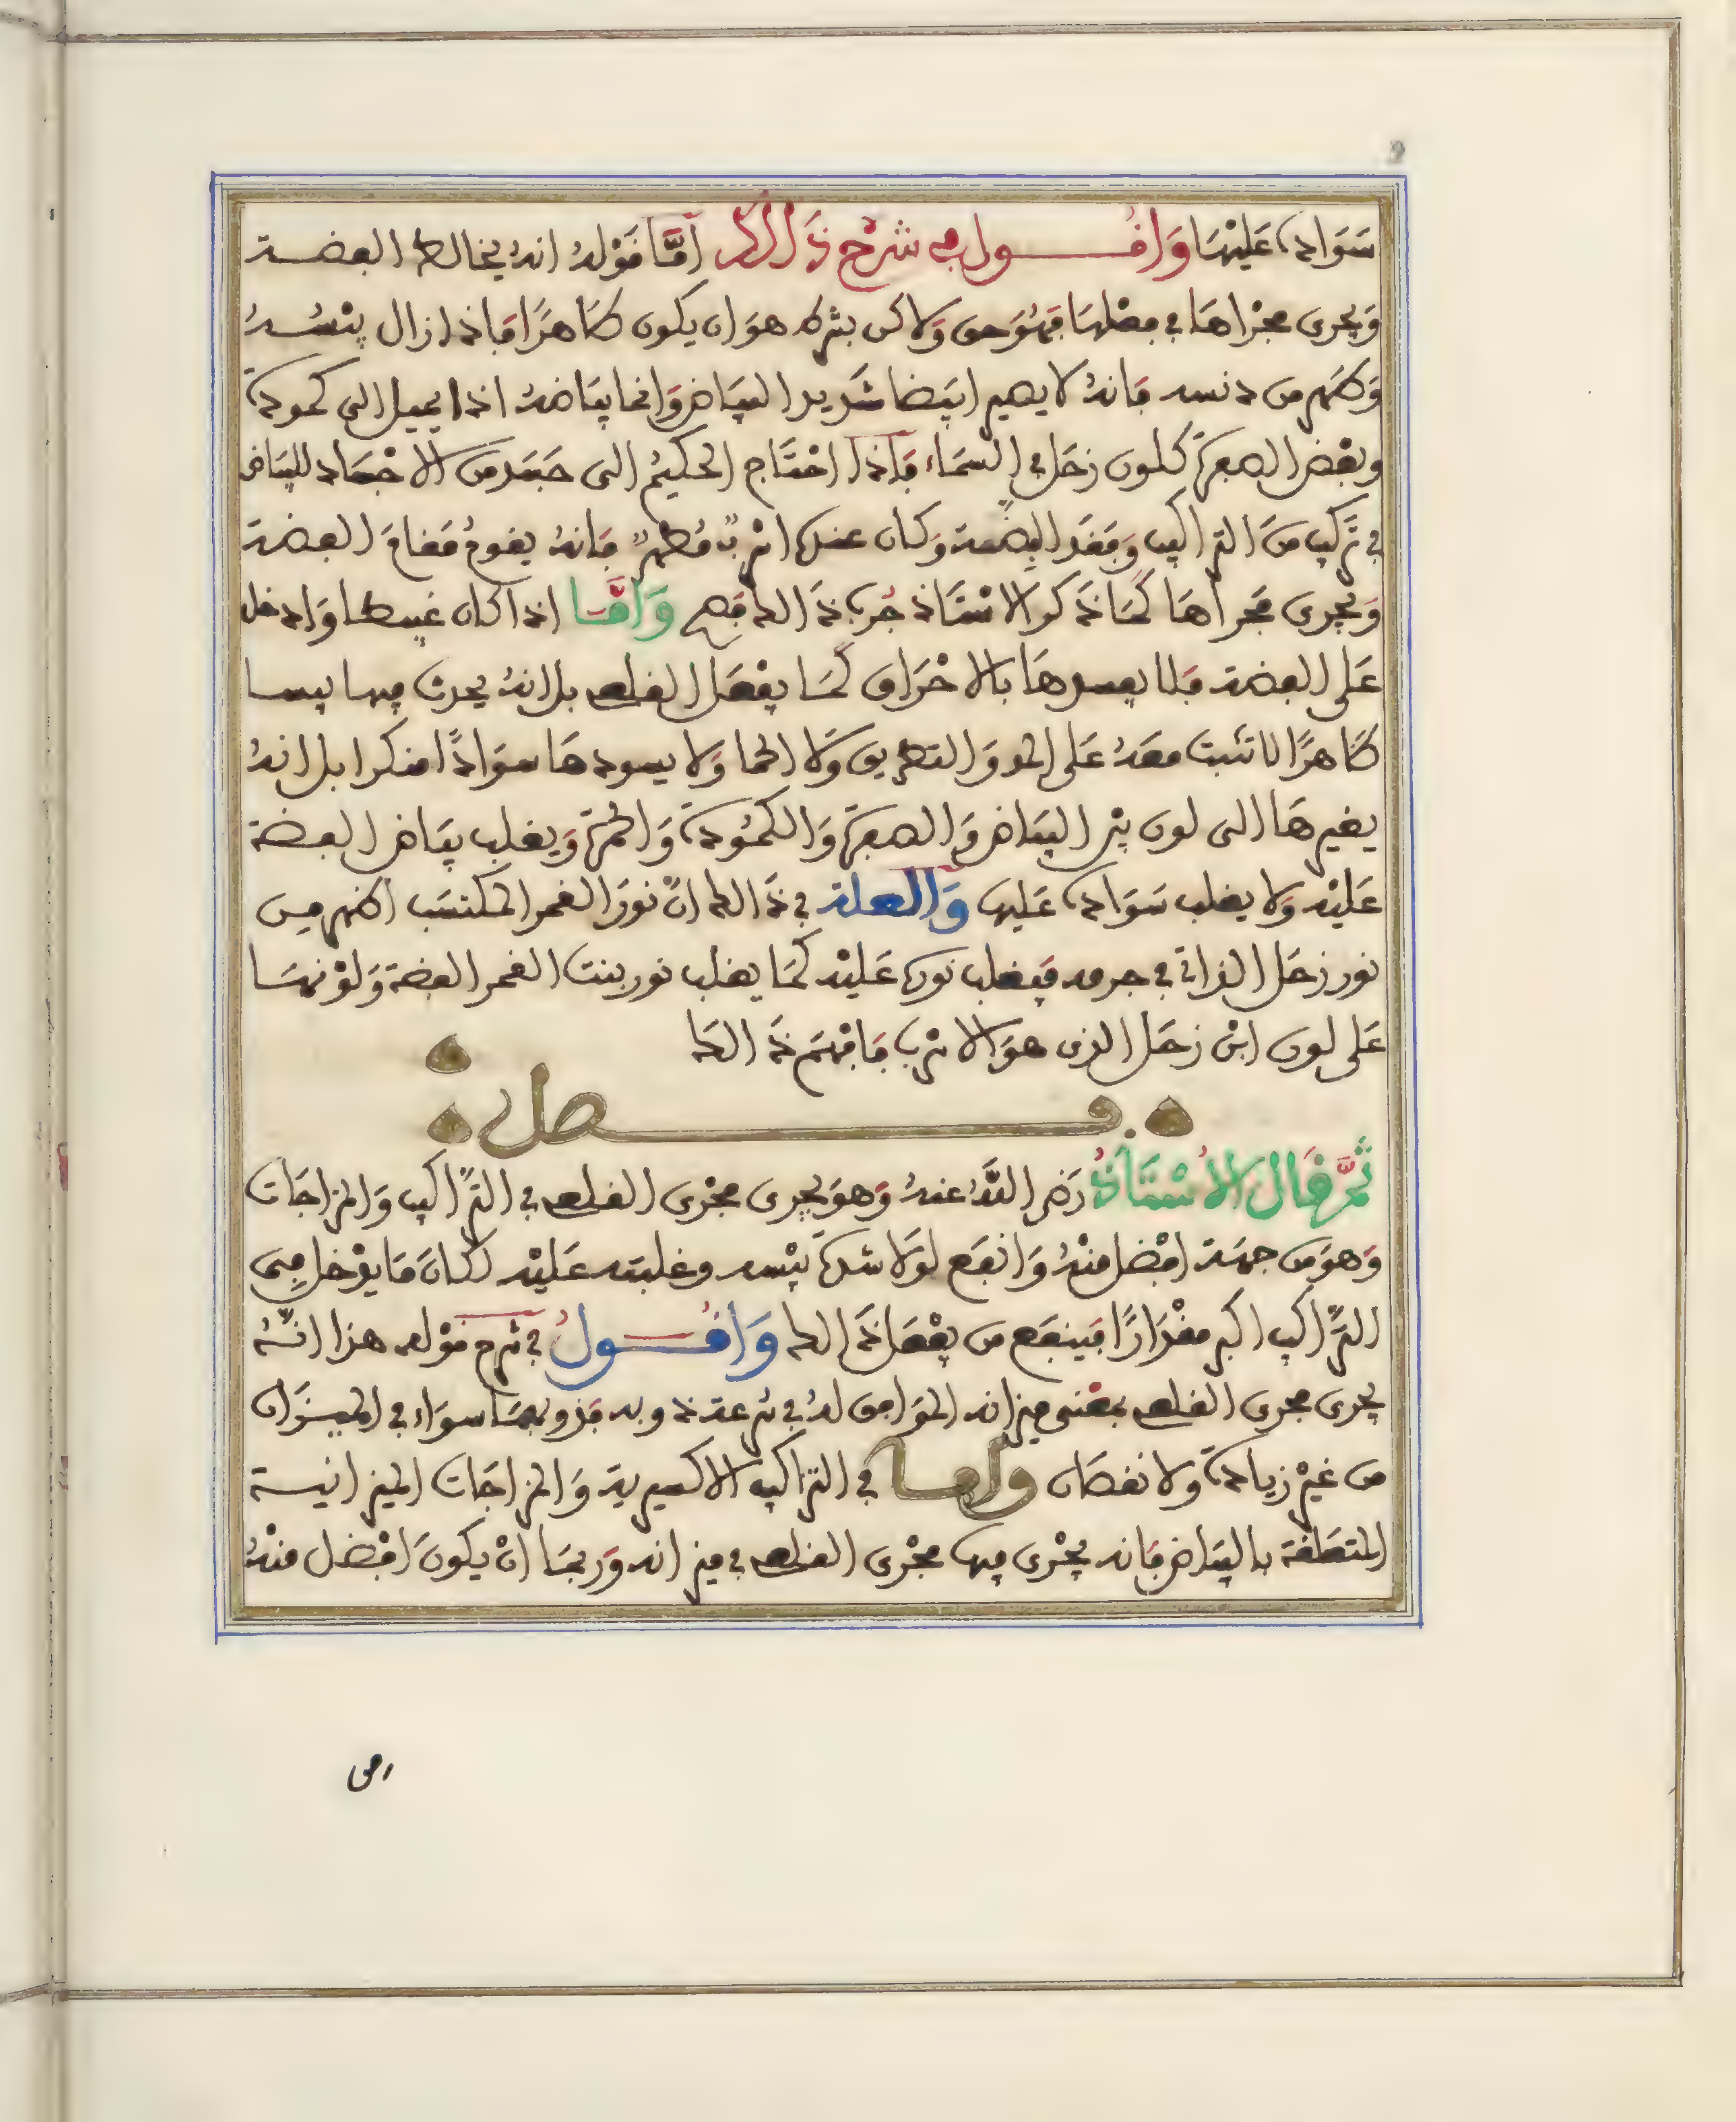 سَوَاده عَلَيْهَا وَاقُول في شرْح ذَالك اَمَّا قوْلهُ انهُ يخالط الفضة
وَيجرى مجْراهَا في فعْلهَا فهُوَ حق وَلاكن بشرط هوَ ان يكون طَاهرًا فاذا زال يبْسُهُ
وَطهر من دنسه فانهُ لا يصير ابيَضا شَديد البيَاض وَانما بيَاضهُ اذا يميل الى كمودة
وبعْض الصفرة كلون زحَل في السمَاء فاذا احْتَاج الحكيمُ الى جَسَد من الاجْسَاد للبيَاض
في تركيب منَ التراكيب وَفقد الفضة وَكان عنده اسْربٌ مُطهرٌ فانهُ يقومُ مَقامَ الفضة
وَيجرى مَجراهَا كمَا ذَكر الاسْتَاذ جُرب ذَالك فصح وَاَمَّا اذا كان غبيطا وَادخل
عَلى الفضة فلا يفسدهَا بالاحْرَاق كمَا يفْعَل القلعى بل انهُ يحدث فيها يبسا
ظَاهرًا لا تثبت معَهُ عَلى المد وَالتطريق وَلا الحما وَلا يسودهَا سوَادًا منكرا بل انهُ
يغيرهَا الى لون بيْن البيَاض وَالصفرة وَالكمُودة وَالحمرة وَيغلب بيَاض الفضة
عَليْه وَلا يغلب سَوَاده عَليها وَالعلة في ذَالك انَّ نورَ القمر المكتسَب اظهر من
نور زحَل الذاتي في جرمه فيغلب نوره عَليْه كمَا يغلب نور بنت القمر الفضة وَلوْنهَا
عَلى لون ابْن زحَل الذى هوَ الاسْرب فافْهَم ذَالك
فصل
ثُمَّ قَال الاسْتَاذُ رَضى اللَّهُ عنهُ وَهوَ يجرى مجْرى القلعى في الترَاكيب وَالمزاجَات
وَهوَ من جهَة افْضل منْهُ وَانفع لوْلا شدة يبْسه وغلبته عَليْه لكانَ مَا يدْخل في
الترَاكيب اكبر مقْدَارًا فيَنفع من يفْعَل ذَالك وَاقُولُ في شرح قوْله هذا انَّهُ
يجرى مجرى القلعى بمَعْنى ميزانه الموَافق لهُ في سرعة ذوبه فذوبهمَا سوَاء في الميزَان
من غيْر زيادة ولا نقصَان وَاما في التراكيب الاكسيرية وَالمزاجَات الميزانية
المتعَلقة بالبيَاض فانه يجْرى فيها مجْرى القلعى في ميزانه وَربمَا انْ يكونَ افْضل منْهُ